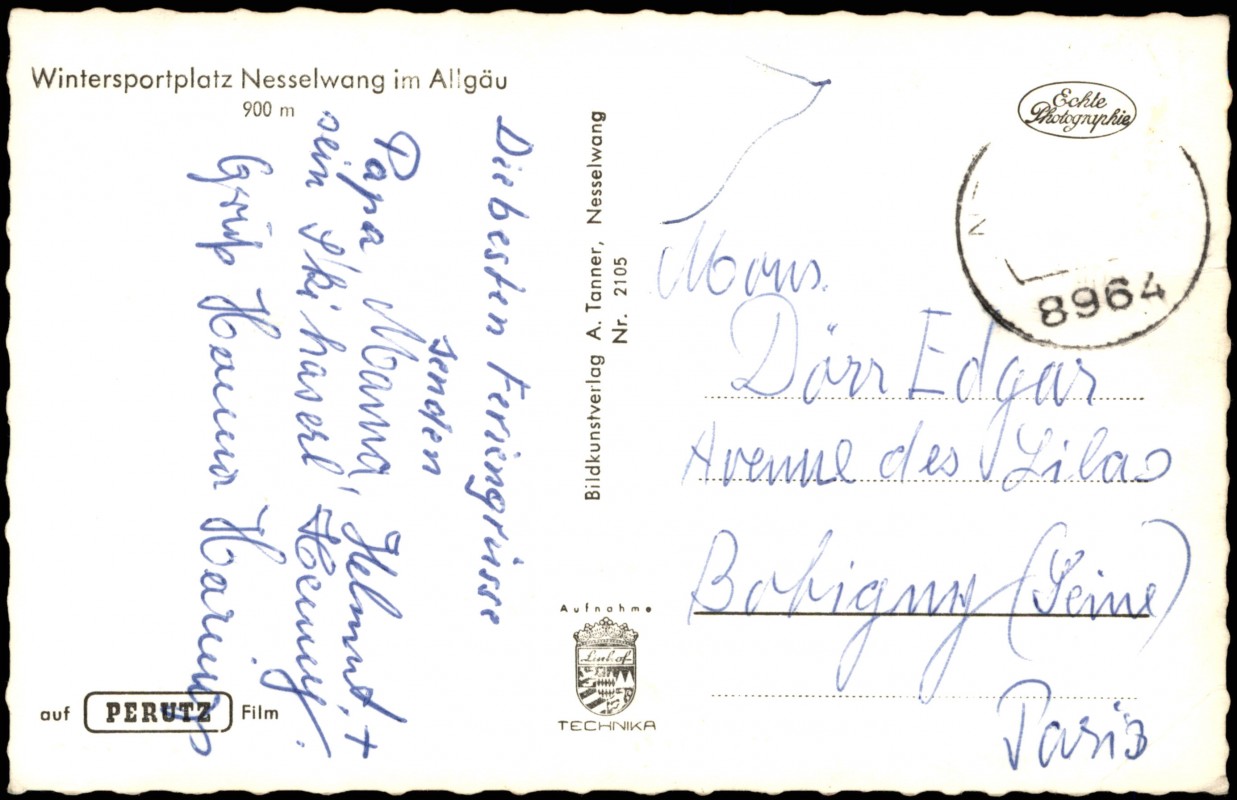 Wintersportplatz Nesselwang im Allgäu
900 m
Die besten Feriengrüsse
senden
Papa Mama, Helmut, +
sein Skihaserl
Gruß Hanna
auf PERUTZ Film
Bildkunstverlag A. Tanner, Nesselwang
Nr. 2105
Aufnahme
Linhof
TECHNIKA
Echte
Photographie
N
8964
Mons.
Dörr Edgar
Avenue des Lilas
Bobigny (Seine)
Paris